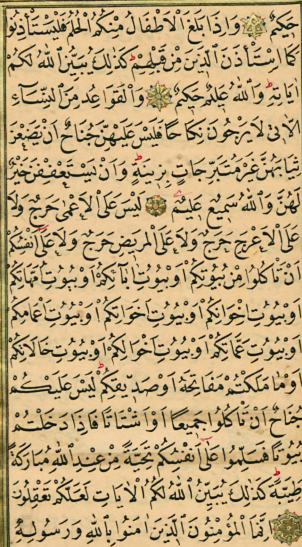 حَكِيمٌ وَاِذَا بَلَغَ الْاَطْفَالُ مِنْكُمُ الْحُلُمَ فَلْيَسْتَأْذِنُوا
كَمَا اسْتَأْذَنَ الَّذِينَ مِنْ قَبْلِهِمْ كَذٰلِكَ يُبَيِّنُ اللّٰهُ لَكُمْ
اٰيَاتِهِ وَاللّٰهُ عَلِيمٌ حَكِيمٌ وَالْقَوَاعِدُ مِنَ النِّسَاءِ
الّٰتِى لَا يَرْجُونَ نِكَاحًا فَلَيْسَ عَلَيْهِنَّ جُنَاحٌ اَنْ يَضَعْنَ
ثِيَابَهُنَّ غَيْرَ مُتَبَرِّجَاتٍ بِزِينَةٍ وَاَنْ يَسْتَعْفِفْنَ خَيْرٌ
لَهُنَّ وَاللّٰهُ سَمِيعٌ عَلِيمٌ لَيْسَ عَلَى الْاَعْمٰى حَرَجٌ وَلَا
عَلَى الْاَعْرَجِ حَرَجٌ وَلَا عَلَى الْمَرِيضِ حَرَجٌ وَلَا عَلٰٓى اَنْفُسِكُمْ
اَنْ تَأْكُلُوا مِنْ بُيُوتِكُمْ اَوْ بُيُوتِ اٰبَائِكُمْ اَوْ بُيُوتِ اُمَّهَاتِكُمْ
اَوْ بُيُوتِ اِخْوَانِكُمْ اَوْ بُيُوتِ اَخَوَاتِكُمْ اَوْ بُيُوتِ اَعْمَامِكُمْ
اَوْ بُيُوتِ عَمَّاتِكُمْ اَوْ بُيُوتِ اَخْوَالِكُمْ اَوْ بُيُوتِ خَالَاتِكُمْ
اَوْ مَا مَلَكْتُمْ مَفَاتِحَهُ اَوْ صَدِيقِكُمْ لَيْسَ عَلَيْكُمْ
جُنَاحٌ اَنْ تَأْكُلُوا جَمِيعًا اَوْ اَشْتَاتًا فَاِذَا دَخَلْتُمْ
بُيُوتًا فَسَلِّمُوا عَلٰٓى اَنْفُسِكُمْ تَحِيَّةً مِنْ عِنْدِ اللّٰهِ مُبَارَكَةً
طَيِّبَةً كَذٰلِكَ يُبَيِّنُ اللّٰهُ لَكُمُ الْاٰيَاتِ لَعَلَّكُمْ تَعْقِلُونَ
اِنَّمَا الْمُؤْمِنُونَ الَّذِينَ اٰمَنُوا بِاللّٰهِ وَرَسُولِهِ